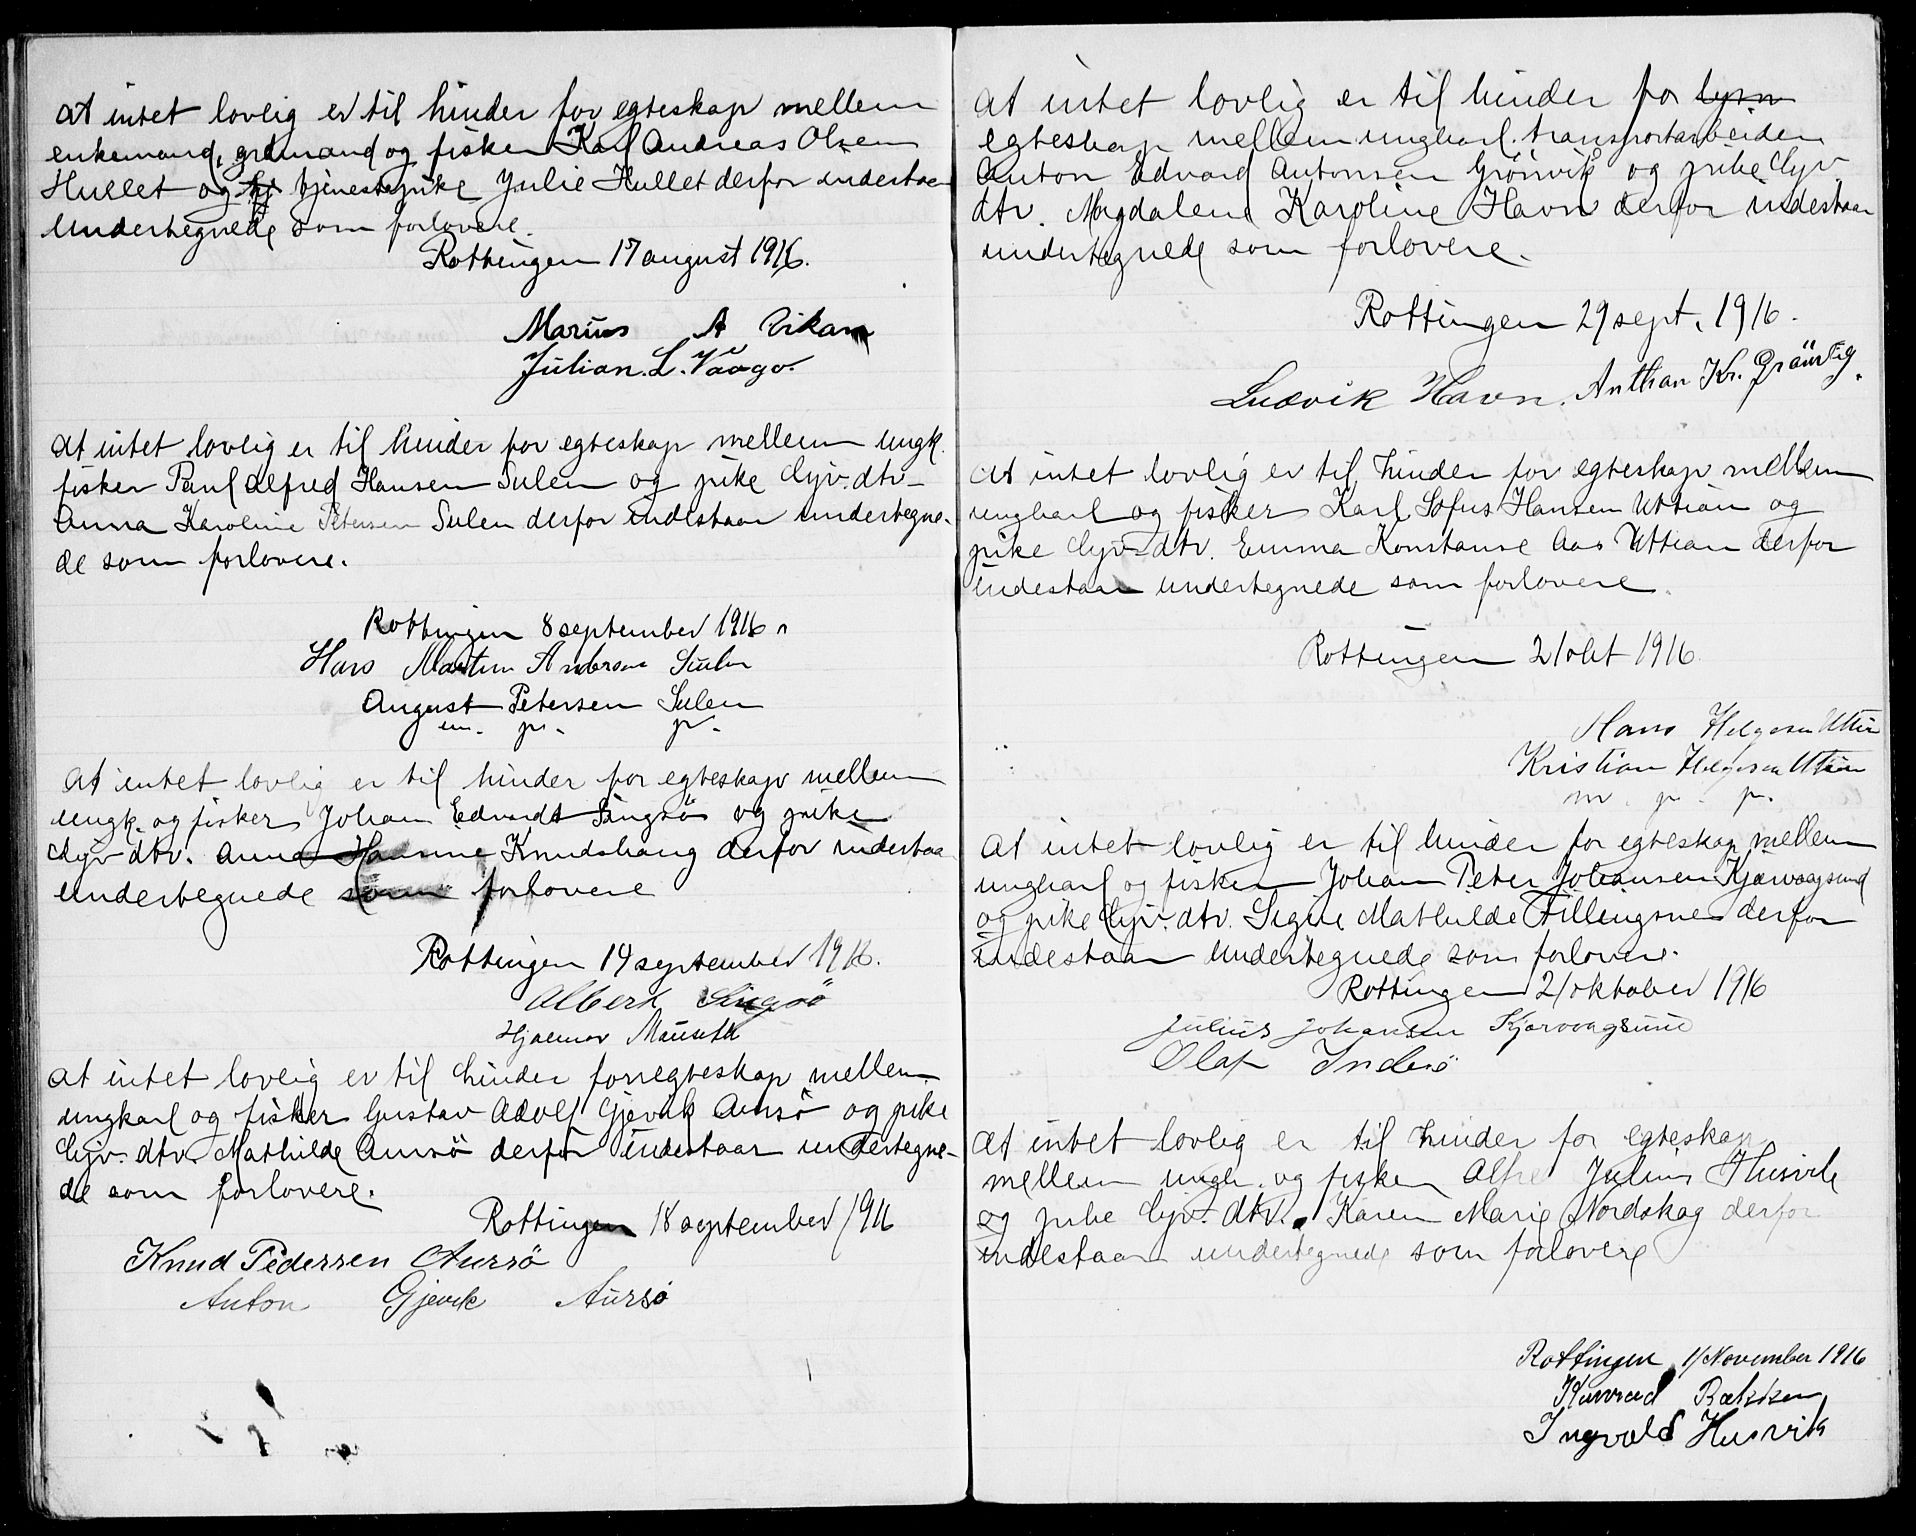 At intet lovlig er til hinder for egteskap mellem
enkemand, grdmand og fisker Karl Andreas Olsen
Hullet og tj tjenestepike Julie Hullet derfor indestaar
undertegnede som forlovere.
Rottingen 17 august 1916.
Marius A Vikan
Julian. L. Vaago.
At intet lovlig er til hinder for egteskap mellem ungk.
fisker Paul Alfred Hansen Sulen og pike Gjv. dtr.
Anna Karoline Petersen Sulen derfor indestaar undertegne-
de som forlovere.
Rottingen 8 september 1916
Hans Martin Andersen Sulen
August Petersen Sulen
m. p. p.
At intet lovlig er til hinder for egteskap mellem
ungk. og fisker Johan Edvardt Singsö og pike
Gjv dtr. Anna Hanna Knudshaug derfor indestaa
undertegnede som forlovere
Rottingen 14 september 1916.
Albert Singsö
Hjalmar
At intet lovlig er til hinder for egteskap mellem
ungkarl og fisker Gustav Adolf Gjevik Aursö og pike
Gjv. dtr. Mathilde Aursö derfor indestaar undertegne-
de som forlovere.
Rottingen 18 september 1916
Knud Pedersen Aursö
Anton Gjevik Aursö
At intet lovlig er til hinder for
egteskap mellem ungkarl. transportarbeider
Anton Edvard Antonsen Grönvik og pike Gjv.
dtr. Magdalene Karoline Havn derfor indestaar
undertegnede som forlovere.
Rottingen 29 sept. 1916.
Ludvik Havn. Anthon Kr. Grönvig.
At intet lovlig er til hinder for egteskap mellem
ungkarl og fisker Karl Sofus Hansen Uttian og
pike Gjv. dtr. Emma Konstanse Aas Uttian derfor
indestaar undertegnede som forlovere.
Rottingen 2/okt 1916.
Hans Helgesen Uttian
Kristian Helgesen Uttian
m. p. p.
At intet lovlig er til hinder for egteskap mellem
ungkarl og fisker Johan Peter Johansen Kjærvaagsund
og pike Gjv. dtr. Signe Mathilde Fillingsnes derfor
indestaar undertegnede som forlovere.
Rottingen 2/oktober 1916
Julius Johansen Kjørvaagsund
Olaf Inderö
At intet lovlig er til hinder for egteskap
mellem ungk. og fisker Alfr Julius Husvik
og pike Gjv. dtr. Karen Marie Nordskag derfor
indestaar undertegnede som forlovere
Rottingen 1/November 1916
Konrad Bekken
Ingvald Husvik